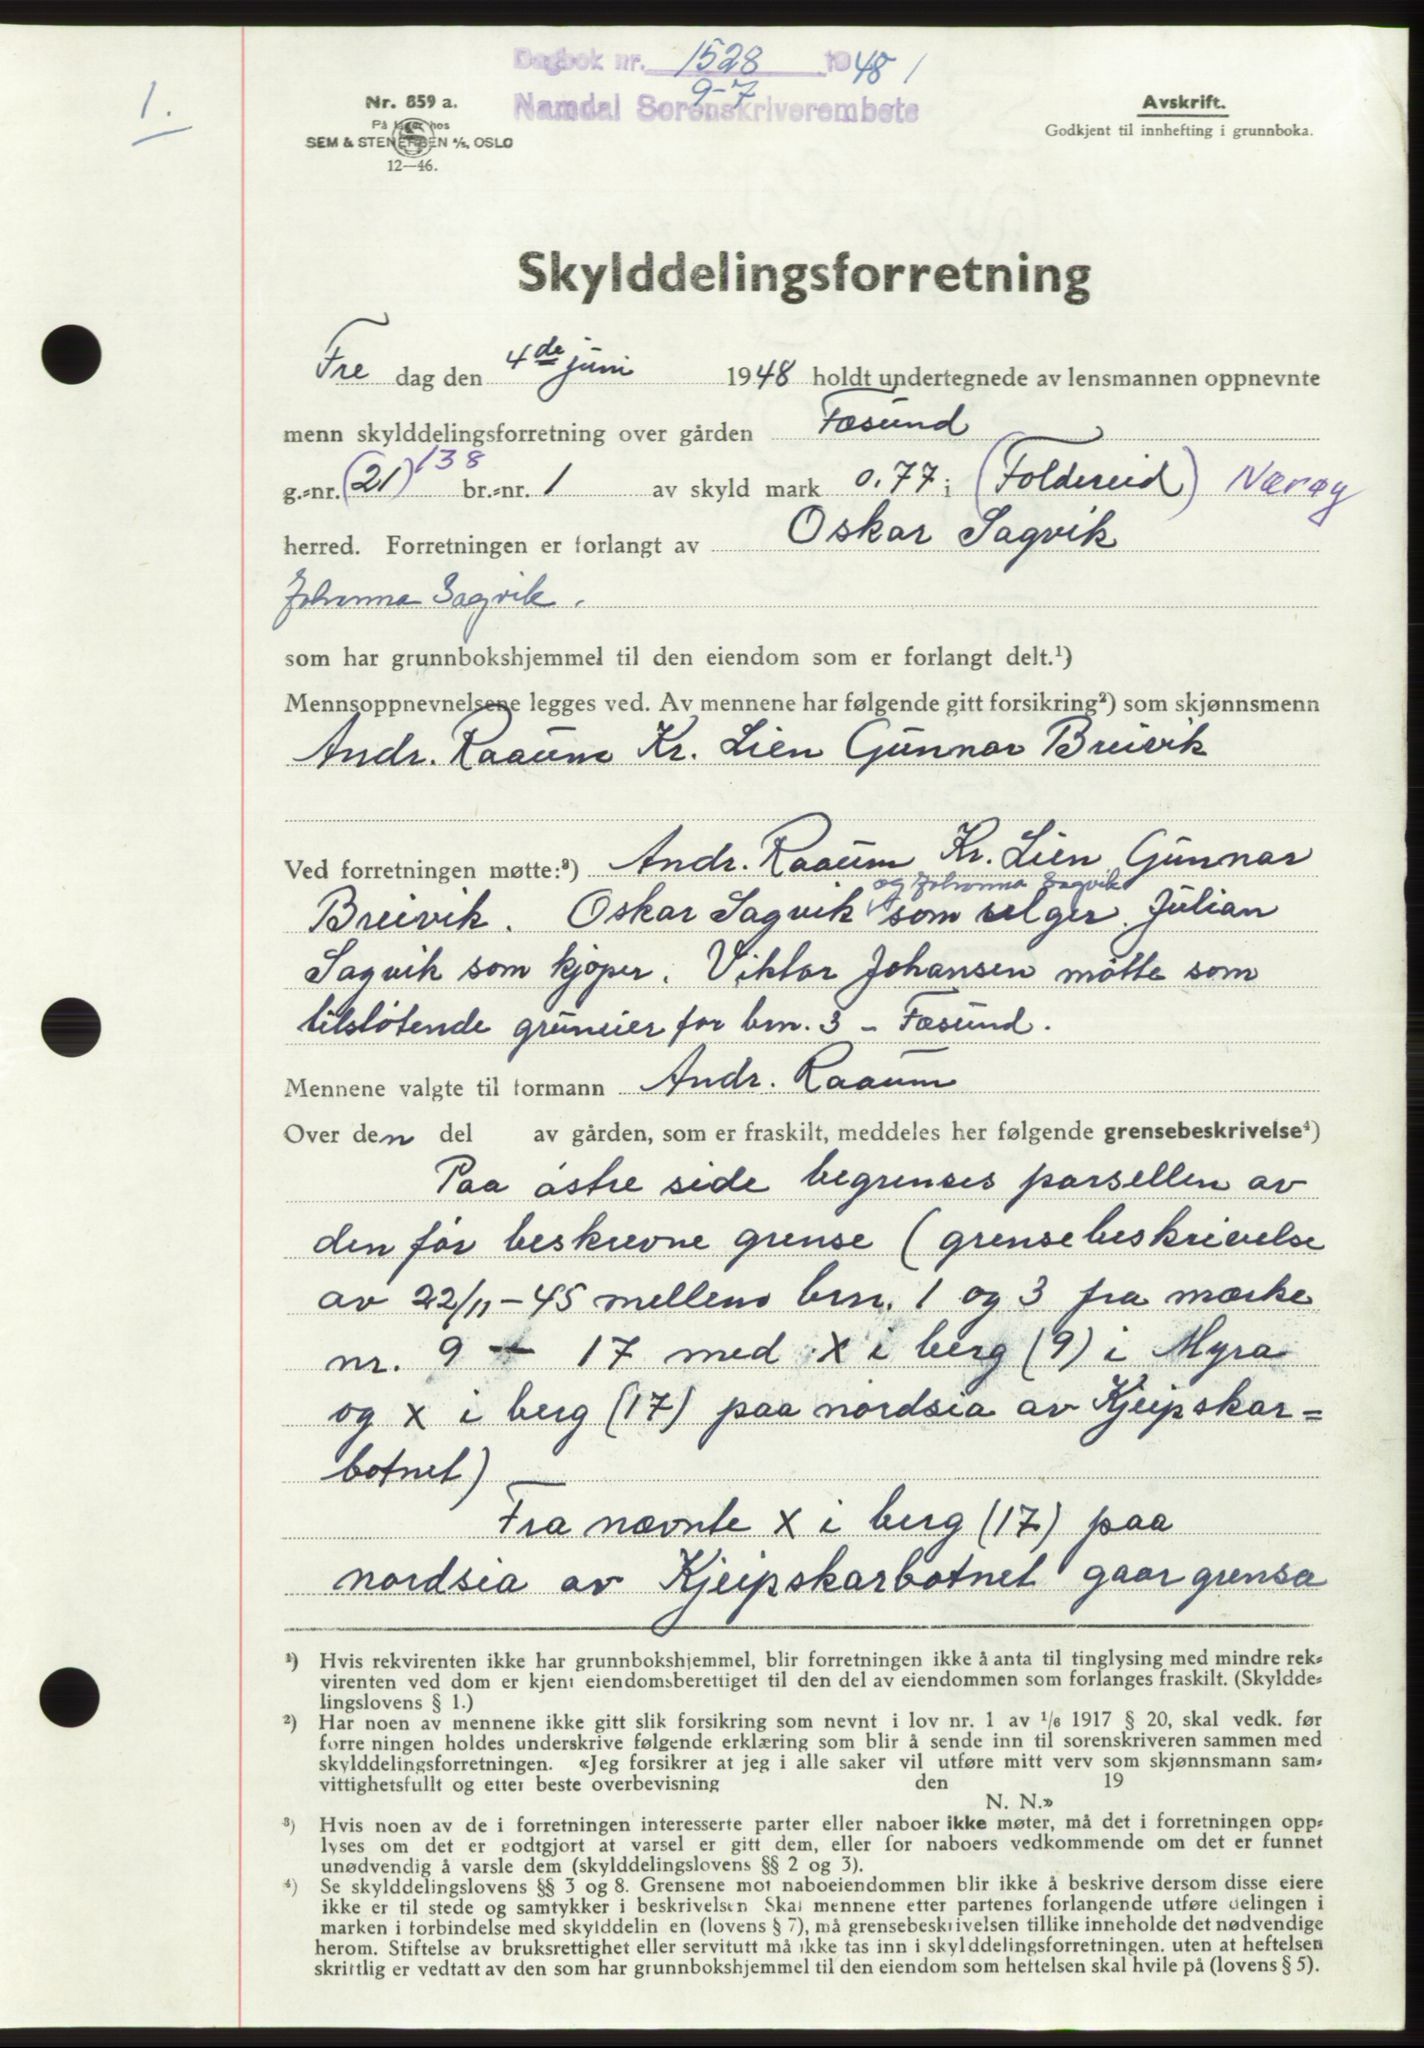 Dagbok nr. 1528 1948 1
9-7
Namdal Sorenskriverembete
1.
Nr. 859 a.
På lager hos
SEM & STENERSEN A/S, OSLO
12—46.
Avskrift.
Godkjent til innhefting i grunnboka.
Skylddelingsforretning
Fre dag den 4de juni 1948 holdt undertegnede av lensmannen oppnevnte
menn skylddelingsforretning over gården Fœsund
g.=nr. (21) 138 br.=nr. 1 av skyld mark 0.77 i (Foldereid) Nærøy
herred. Forretningen er forlangt av Oskar Sagvik
Johanna Sagvik.
som har grunnbokshjemmel til den eiendom som er forlangt delt.¹)
Mennsoppnevnelsene legges ved. Av mennene har følgende gitt forsikring²) som skjønnsmenn
Andr. Raaum Kr. Lien Gunnar Breivik
Ved forretningen møtte:³) Andr. Raaum Kr. Lien Gunnar
og Johanna Sagvik
Breivik. Oskar Sagvik som selger. Julian
Sagvik som kjøper. Viktor Johansen møtte som
tilstøtende gruneier for brn. 3 - Fœsund.
Mennene valgte til formann Andr. Raaum
Over den del av gården, som er fraskilt, meddeles her følgende grensebeskrivelse⁴)
Paa østre side begrenses parsellen av
den før beskrevne grense (grensebeskrivelse
av 22/11-45 mellem brn. 1 og 3 fra mærke
nr. 9 - 17 med x i berg (9) i Myra
og x i berg (17) paa nordsia av Kjeipskar=
botnet)
Fra nævnte x i berg (17) paa
nordsia av Kjeipskarbotnet gaar grensa
¹) Hvis rekvirenten ikke har grunnbokshjemmel, blir forretningen ikke å anta til tinglysing med mindre rek=
virenten ved dom er kjent eiendomsberettiget til den del av eiendommen som forlanges fraskilt. (Skyldde=
lingslovens § 1.)
²) Har noen av mennene ikke gitt slik forsikring som nevnt i lov nr. 1 av 1/6 1917 § 20, skal vedk. før
forre ningen holdes underskrive følgende erklæring som blir å sende inn til sorenskriveren sammen med
skylddelingsforretningen. «Jeg forsikrer at jeg i alle saker vil utføre mitt verv som skjønnsmann sam=
vittighetsfullt og etter beste overbevisning den 19
N. N.»
³) Hvis noen av de i forretningen interesserte parter eller naboer ikke møter, må det i forretningen opp=
lyses om det er godtgjort at varsel er gitt dem, eller for naboers vedkommende om det er funnet
unødvendig å varsle dem (skylddelingslovens §§ 2 og 3).
⁴) Se skylddelingslovens §§ 3 og 8. Grensene mot naboeiendommen blir ikke å beskrive dersom disse eiere
ikke er til stede og samtykker i beskrivelsen Skal mennene etter partenes forlangende utføre delingen i
marken i forbindelse med skylddelin en (lovens § 7), må grensebeskrivelsen tillike inneholde det nødvendige
herom. Stiftelse av bruksrettighet eller servitutt må ikke tas inn i skylddelingsforretningen. uten at heftelsen
skriftlig er vedtatt av den som har grunnbokshjemmel til den eiendom som heftelsen skal hvile på (lovens § 5).